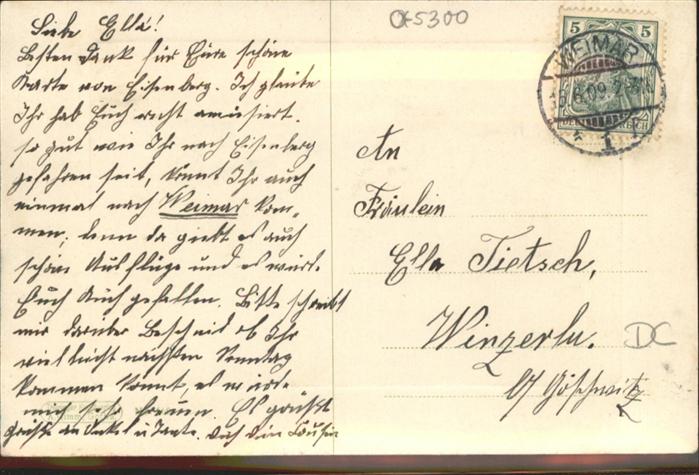 Liebe Ella!
Besten Dank für Eure schöne
Karte von Eisenberg. Ich glaube
Ihr hab Euch recht amüsiert.
so gut wie Ihr nach Eisenberg
gefahren seit, könnt Ihr auch
einmal nach Weimar kom-
men; denn da giebt es auch
schöne Ausflüge und es würde
Euch auch gefallen. Bitte schreibt
mir darüber Bescheid ob Ihr
vielleicht nächsten Sonntag
kommen könnt, es würde
mich sehr freuen. Es grüßt
Grüße an Onkel u Tante. Dich Dein Cousin
α5300
5 5
WEIMAR
6.09.2
DEUTSCHES REICH
1
An
Fräulein
Ella Tietsch,
Winzerla.
DC
b/ Göschwitz